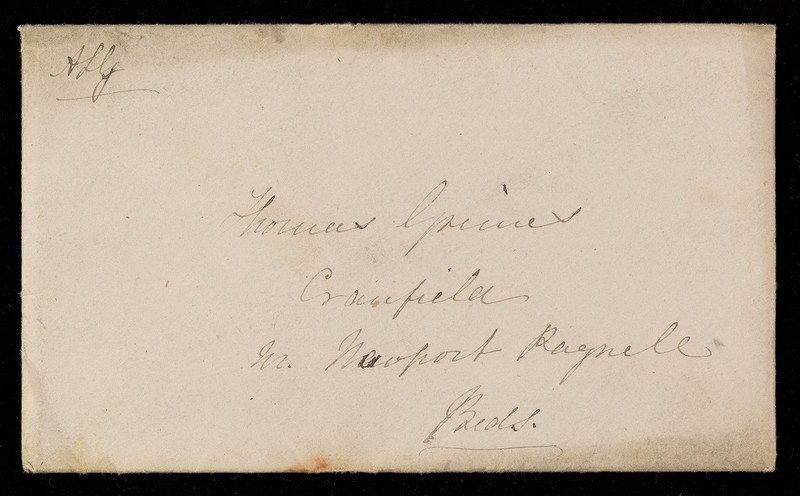 Thomas Grimes
Cranfield
Nr. Newport Pagnell
Beds.